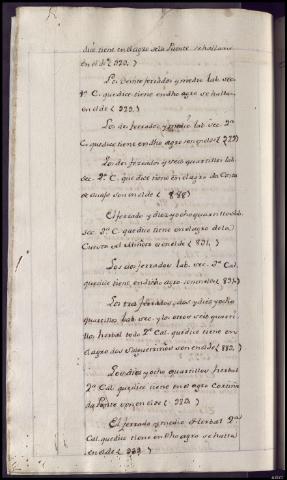 que tiene en el agro de la Puente se hallaran
en el de ( 323. )
Los veinte ferrados y medio lab. sec.
1ª C. que dice tiene en dho agro se hallan
en el de ( 323. )
Los dos ferrados y medio lab. sec. 2ª
C. que dice tiene en dho agro son en el de ( 323 )
Los dos ferrados y seis quartillos lab.
sec. 2ª C. que dice tiene en el agro da Costa
de son en el de ( 888 )
El ferrado y diez y ocho quartillos lab.
sec. 2ª C. que dice tiene en el agro de la
Cuesta es en el de ( 831. )
Los dos ferrados lab. sec. 2ª Cal.
que dice tiene en dicho agro son en el de ( 831 )
Los tres ferrados, dos y diez y ocho
quartillos lab. sec. y los otros seis quarti-
llos herbal todo 2ª Cal. que dice tiene en
el agro das son en el de ( 882. )
Los diez y ocho quartillos herbal
2ª Cal. que dice tiene en el agro Cortiña
da Ponte son en el de ( 323. )
El ferrado y medio Herbal 2ª
Cal. que dice tiene en dho agro se halla
en el de ( 323. )